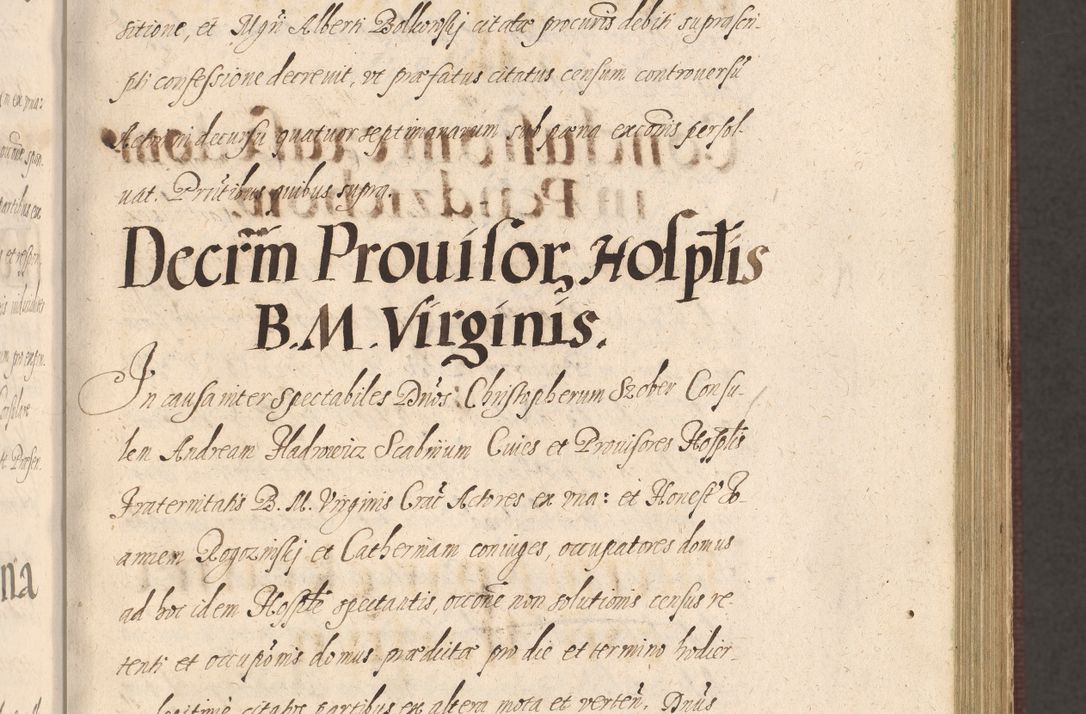 sitione, et Mgri Alberti Bolkonskj citatæ procuris debiti suprascri-
pti confessione decrevit, vt præfatus citatus censum controversũ
Actori in decursu quatuor septimanarum sub pœna excõis persol-
uat. Prñtibus quibus supra.
Decrm̃ Prouisor, Hosptĩs
B. M. Virginis.
In causa inter spectabiles Dños Christopherum Szober Consu-
lem Andream Hadrowicz Scabinum Ciues et Prouisores Hosptĩs
Fraternitatis B. M. Virginis Crac̃ Actores ex vna: et Honest' Jo-
annem Rogozinskj et Catherinam coniuges, occupatores domus
ad hoc idem Hosptle spectantis, occõne non solutionis census re-
tenti et occupõnis domus prædictæ pro die et termino hodier-
legitime citatos partibus ex altera mota et verteñ. Dñus